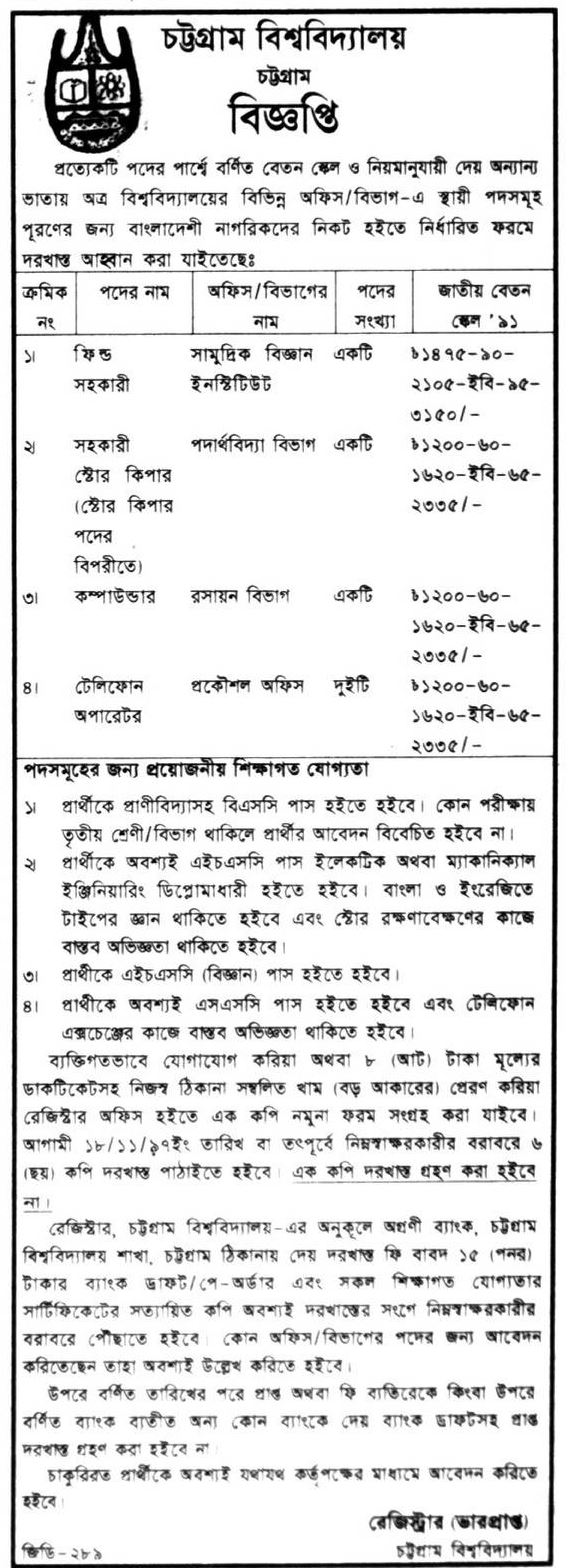 চট্টগ্রাম বিশ্ববিদ্যালয়
চট্টগ্রাম
বিজ্ঞপ্তি
প্রত্যেকটি পদের পার্শ্বে বর্ণিত বেতন স্কেল ও নিয়মানুযায়ী দেয় অন্যান্য
ভাতায় অত্র বিশ্ববিদ্যালয়ের বিভিন্ন অফিস/বিভাগ-এ স্থায়ী পদসমূহ
পূরণের জন্য বাংলাদেশী নাগরিকদের নিকট হইতে নির্ধারিত ফরমে
দরখাস্ত আহ্বান করা যাইতেছেঃ
ক্রমিক পদের নাম অফিস/বিভাগের পদের জাতীয় বেতন
নং নাম সংখ্যা স্কেল '৯১
১। ফিল্ড সামুদ্রিক বিজ্ঞান একটি ৳১৪৭৫-৯০-
সহকারী ইনস্টিটিউট ২১০৫-ইবি-৯৫-
৩১৫০/-
২। সহকারী পদার্থবিদ্যা বিভাগ একটি ৳১২০০-৬০-
স্টোর কিপার ১৬২০-ইবি-৬৫-
(স্টোর কিপার ২৩৩৫/-
পদের
বিপরীতে)
৩। কম্পাউন্ডার রসায়ন বিভাগ একটি ৳১২০০-৬০-
১৬২০-ইবি-৬৫-
২৩৩৫/-
৪। টেলিফোন প্রকৌশল অফিস দুইটি ৳১২০০-৬০-
অপারেটর ১৬২০-ইবি-৬৫-
২৩৩৫/-
পদসমূহের জন্য প্রয়োজনীয় শিক্ষাগত যোগ্যতা
১। প্রার্থীকে প্রাণীবিদ্যাসহ বিএসসি পাস হইতে হইবে। কোন পরীক্ষায়
তৃতীয় শ্রেণী/বিভাগ থাকিলে প্রার্থীর আবেদন বিবেচিত হইবে না।
২। প্রার্থীকে অবশ্যই এইচএসসি পাস ইলেকট্রিক অথবা ম্যাকানিক্যাল
ইঞ্জিনিয়ারিং ডিপ্লোমাধারী হইতে হইবে। বাংলা ও ইংরেজিতে
টাইপের জ্ঞান থাকিতে হইবে এবং স্টোর রক্ষণাবেক্ষণের কাজে
বাস্তব অভিজ্ঞতা থাকিতে হইবে।
৩। প্রার্থীকে এইচএসসি (বিজ্ঞান) পাস হইতে হইবে।
৪। প্রার্থীকে অবশ্যই এসএসসি পাস হইতে হইবে এবং টেলিফোন
এক্সচেঞ্জের কাজে বাস্তব অভিজ্ঞতা থাকিতে হইবে।
ব্যক্তিগতভাবে যোগাযোগ করিয়া অথবা ৮ (আট) টাকা মূল্যের
ডাকটিকেটসহ নিজস্ব ঠিকানা সম্বলিত খাম (বড় আকারের) প্রেরণ করিয়া
রেজিস্টার অফিস হইতে এক কপি নমুনা ফরম সংগ্রহ করা যাইবে।
আগামী ১৮/১১/৯৭ইং তারিখ বা তৎপূর্বে নিম্নস্বাক্ষরকারীর বরাবরে ৬
(ছয়) কপি দরখাস্ত পাঠাইতে হইবে। এক কপি দরখাস্ত গ্রহণ করা হইবে
না।
রেজিস্টার, চট্টগ্রাম বিশ্ববিদ্যালয়-এর অনুকূলে অগ্রণী ব্যাংক, চট্টগ্রাম
বিশ্ববিদ্যালয় শাখা, চট্টগ্রাম ঠিকানায় দেয় দরখাস্ত ফি বাবদ ১৫ (পনর)
টাকার ব্যাংক ড্রাফট/পে-অর্ডার এবং সকল শিক্ষাগত যোগ্যতার
সার্টিফিকেটের সত্যায়িত কপি অবশ্যই দরখাস্তের সংগে নিম্নস্বাক্ষরকারীর
বরাবরে পৌঁছাতে হইবে। কোন অফিস/বিভাগের পদের জন্য আবেদন
করিতেছেন তাহা অবশ্যই উল্লেখ করিতে হইবে।
উপরে বর্ণিত তারিখের পরে প্রাপ্ত অথবা ফি ব্যতিরেকে কিংবা উপরে
বর্ণিত ব্যাংক ব্যতীত অন্য কোন ব্যাংকে দেয় ব্যাংক ড্রাফটসহ প্রাপ্ত
দরখাস্ত গ্রহণ করা হইবে না।
চাকুরিরত প্রার্থীকে অবশ্যই যথাযথ কর্তৃপক্ষের মাধ্যমে আবেদন করিতে
হইবে।
রেজিস্ট্রার (ভারপ্রাপ্ত)
জিডি-২৮৯ চট্টগ্রাম বিশ্ববিদ্যালয়